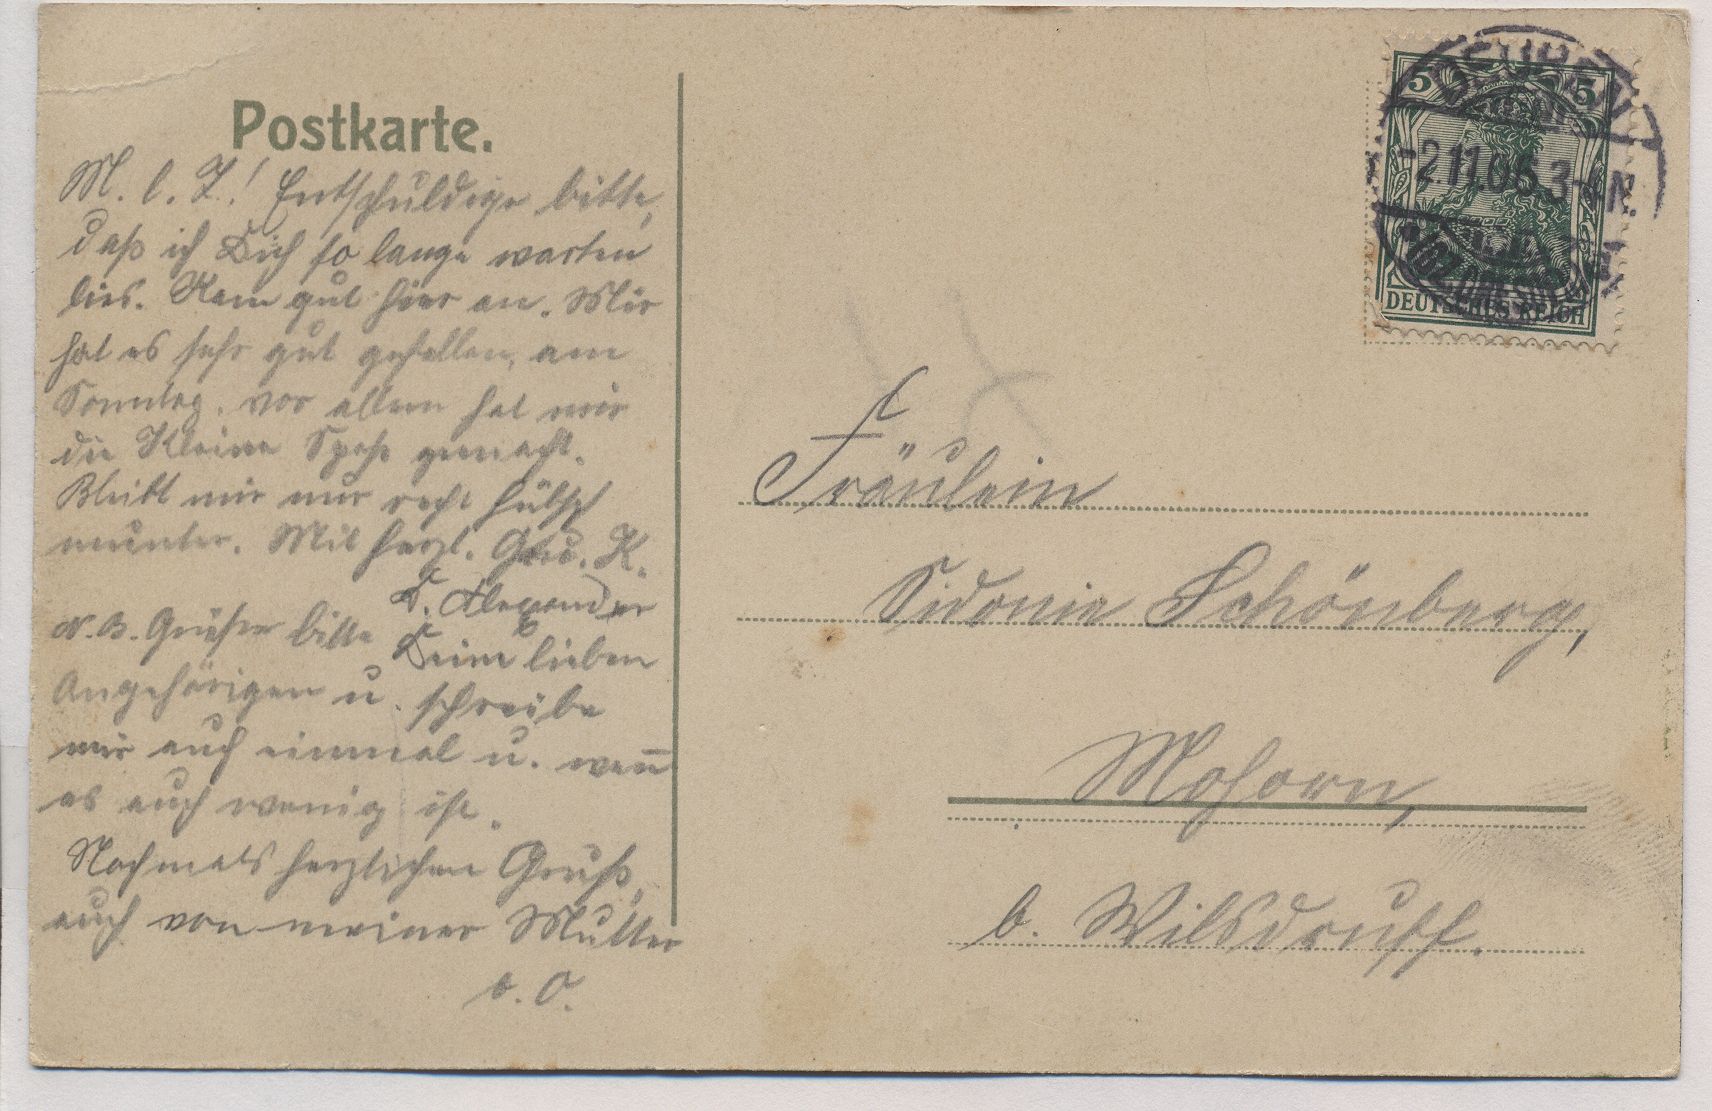 Postkarte.
M. l. Z.! Entschuldige bitte,
daß ich Dich so lange warten
lies. Kam gut hier an. Mir
hat es sehr gut gefallen, am
Sonntag. vor allem hat mir
die Kleine Spaß gemacht.
Bleibt mir nur recht hübsch
munter. Mit herzl. K.
D. Alexander
N.B. Grüße bitte Deine lieben
Angehörigen u. schreibe
mir auch einmal u. weñ
es auch wenig ist.
Nochmals herzlichen Gruß,
auch von meiner Mutter
d. O.
5 5
DEUBEN
-2.11.06.3-4N.
(BZ. DRESDEN)
DEUTSCHES REICH
Fräulein
Sidonie Schönberg,
Mohorn,
b. Wilsdruff.